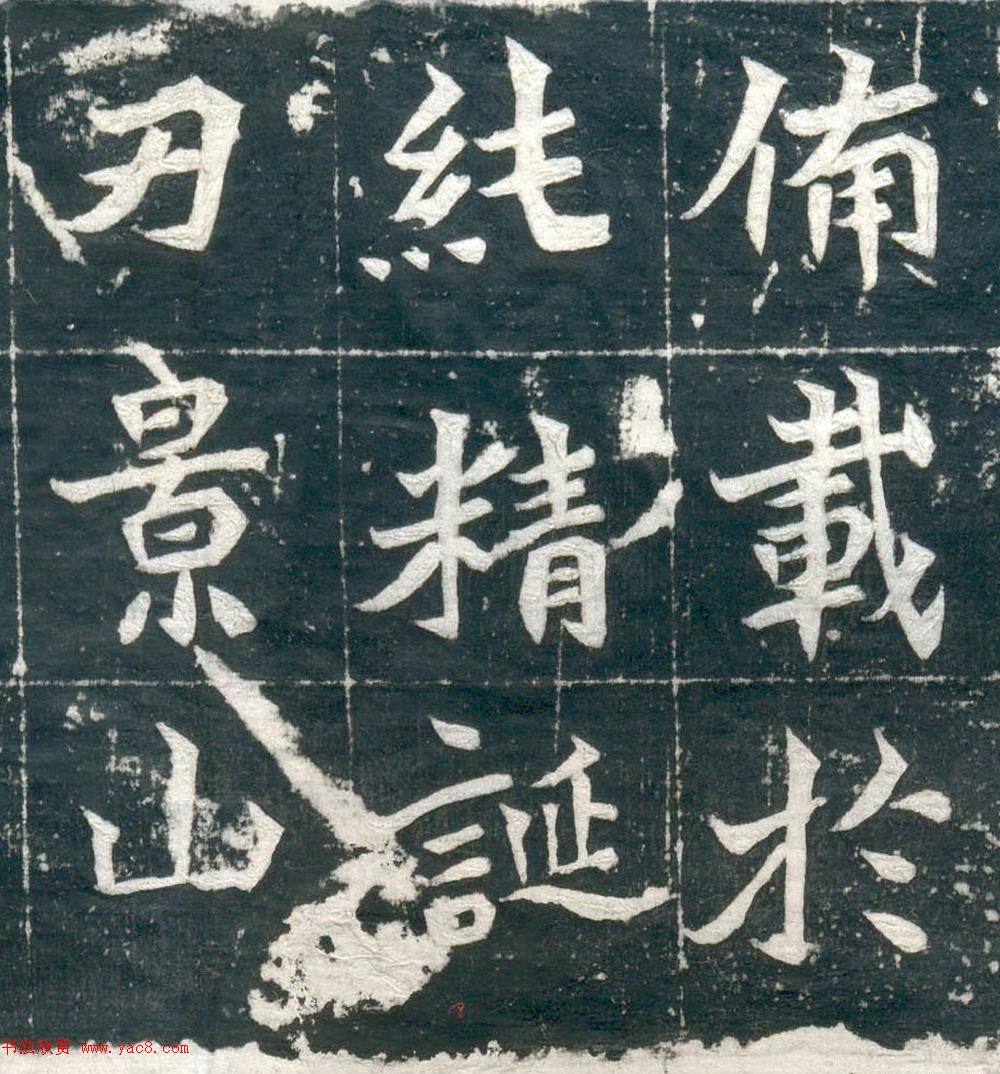 備載於
純精誕
刃景山
书法欣赏 www.yac8.com